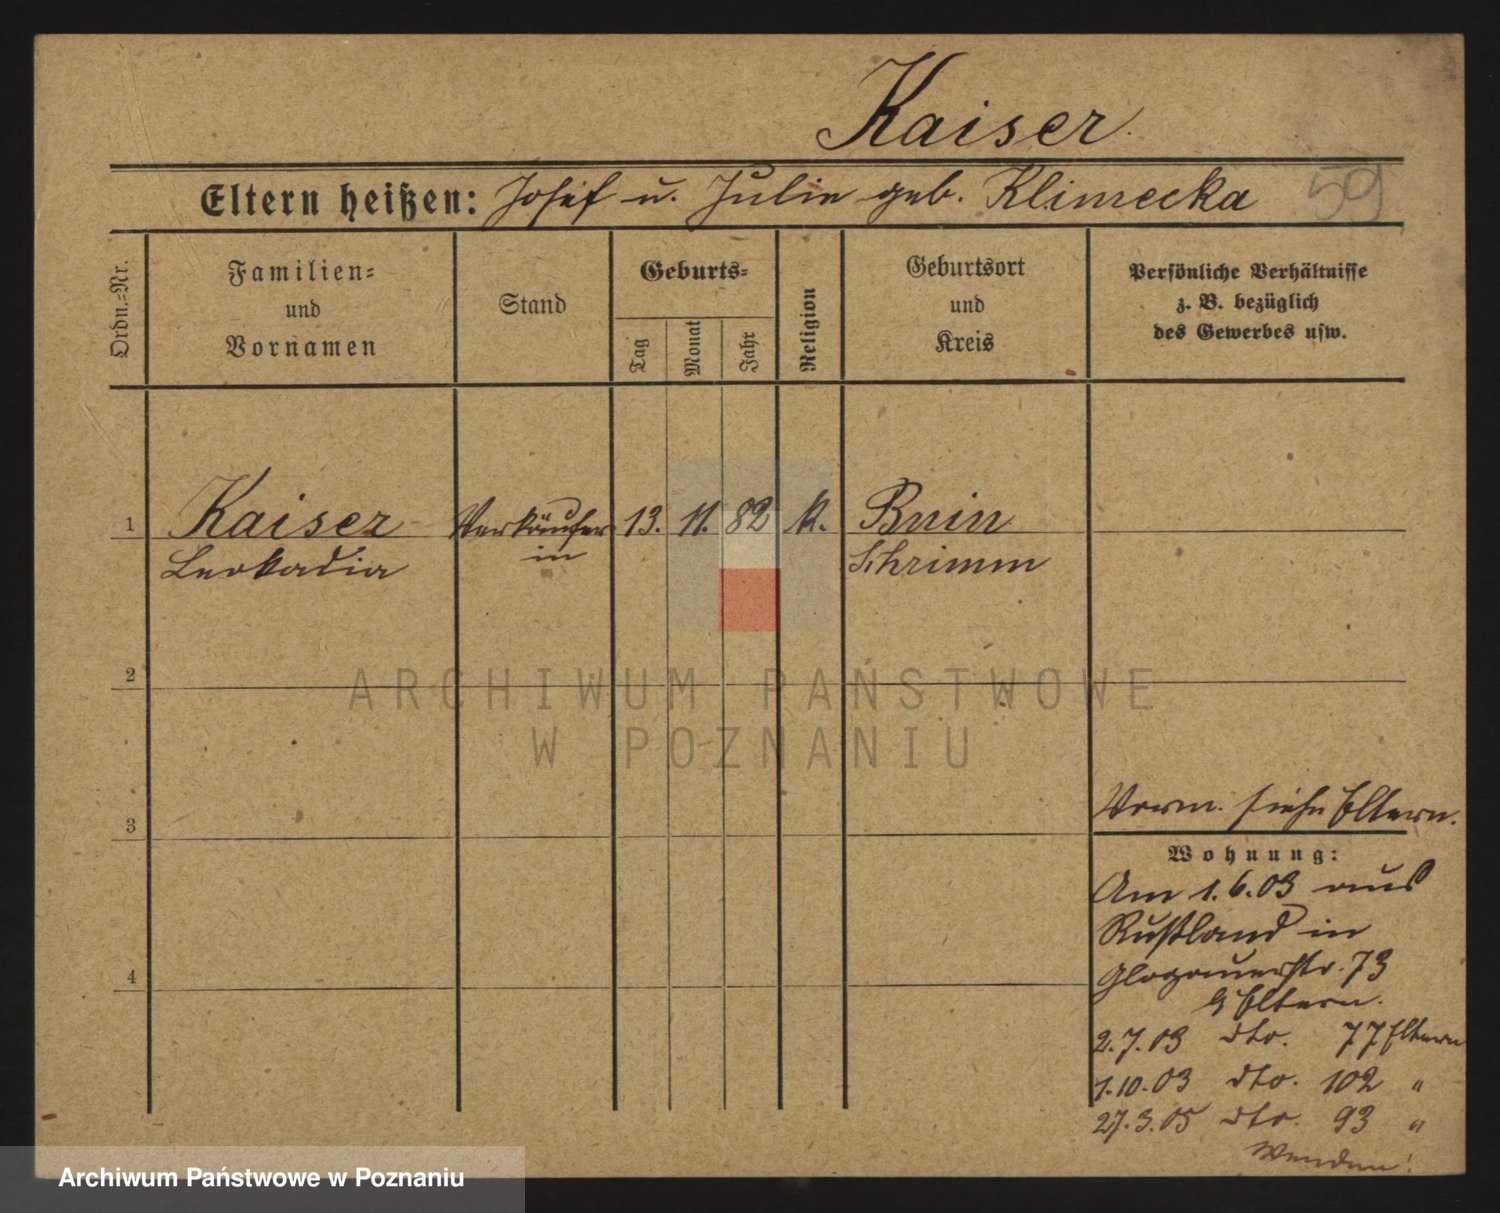 Kaiser
Eltern heißen: Josef u. Julie geb. Klimecka 59
Ordn.=Nr.
Familien=
und
Vornamen
Stand
Geburts=
Tag
Monat
Jahr
Religion
Geburtsort
und
Kreis
Persönliche Verhältnisse
z. B. bezüglich
des Gewerbes usw.
1 Kaiser Verkäufer 13. 11. 82 k. Bnin
Leokadia in Schrimm
2
3
4
Vorm. siehe Eltern.
Wohnung:
Am 1.6.03 aus
Rußland in
Glogauerstr. 73
b/ Eltern.
2.7.03 dto. 77 Eltern
1.10.03 dto. 102 "
27.3.05 dto. 93 "
Wenden!
ARCHIWUM PAŃSTWOWE
W POZNANIU
Archiwum Państwowe w Poznaniu